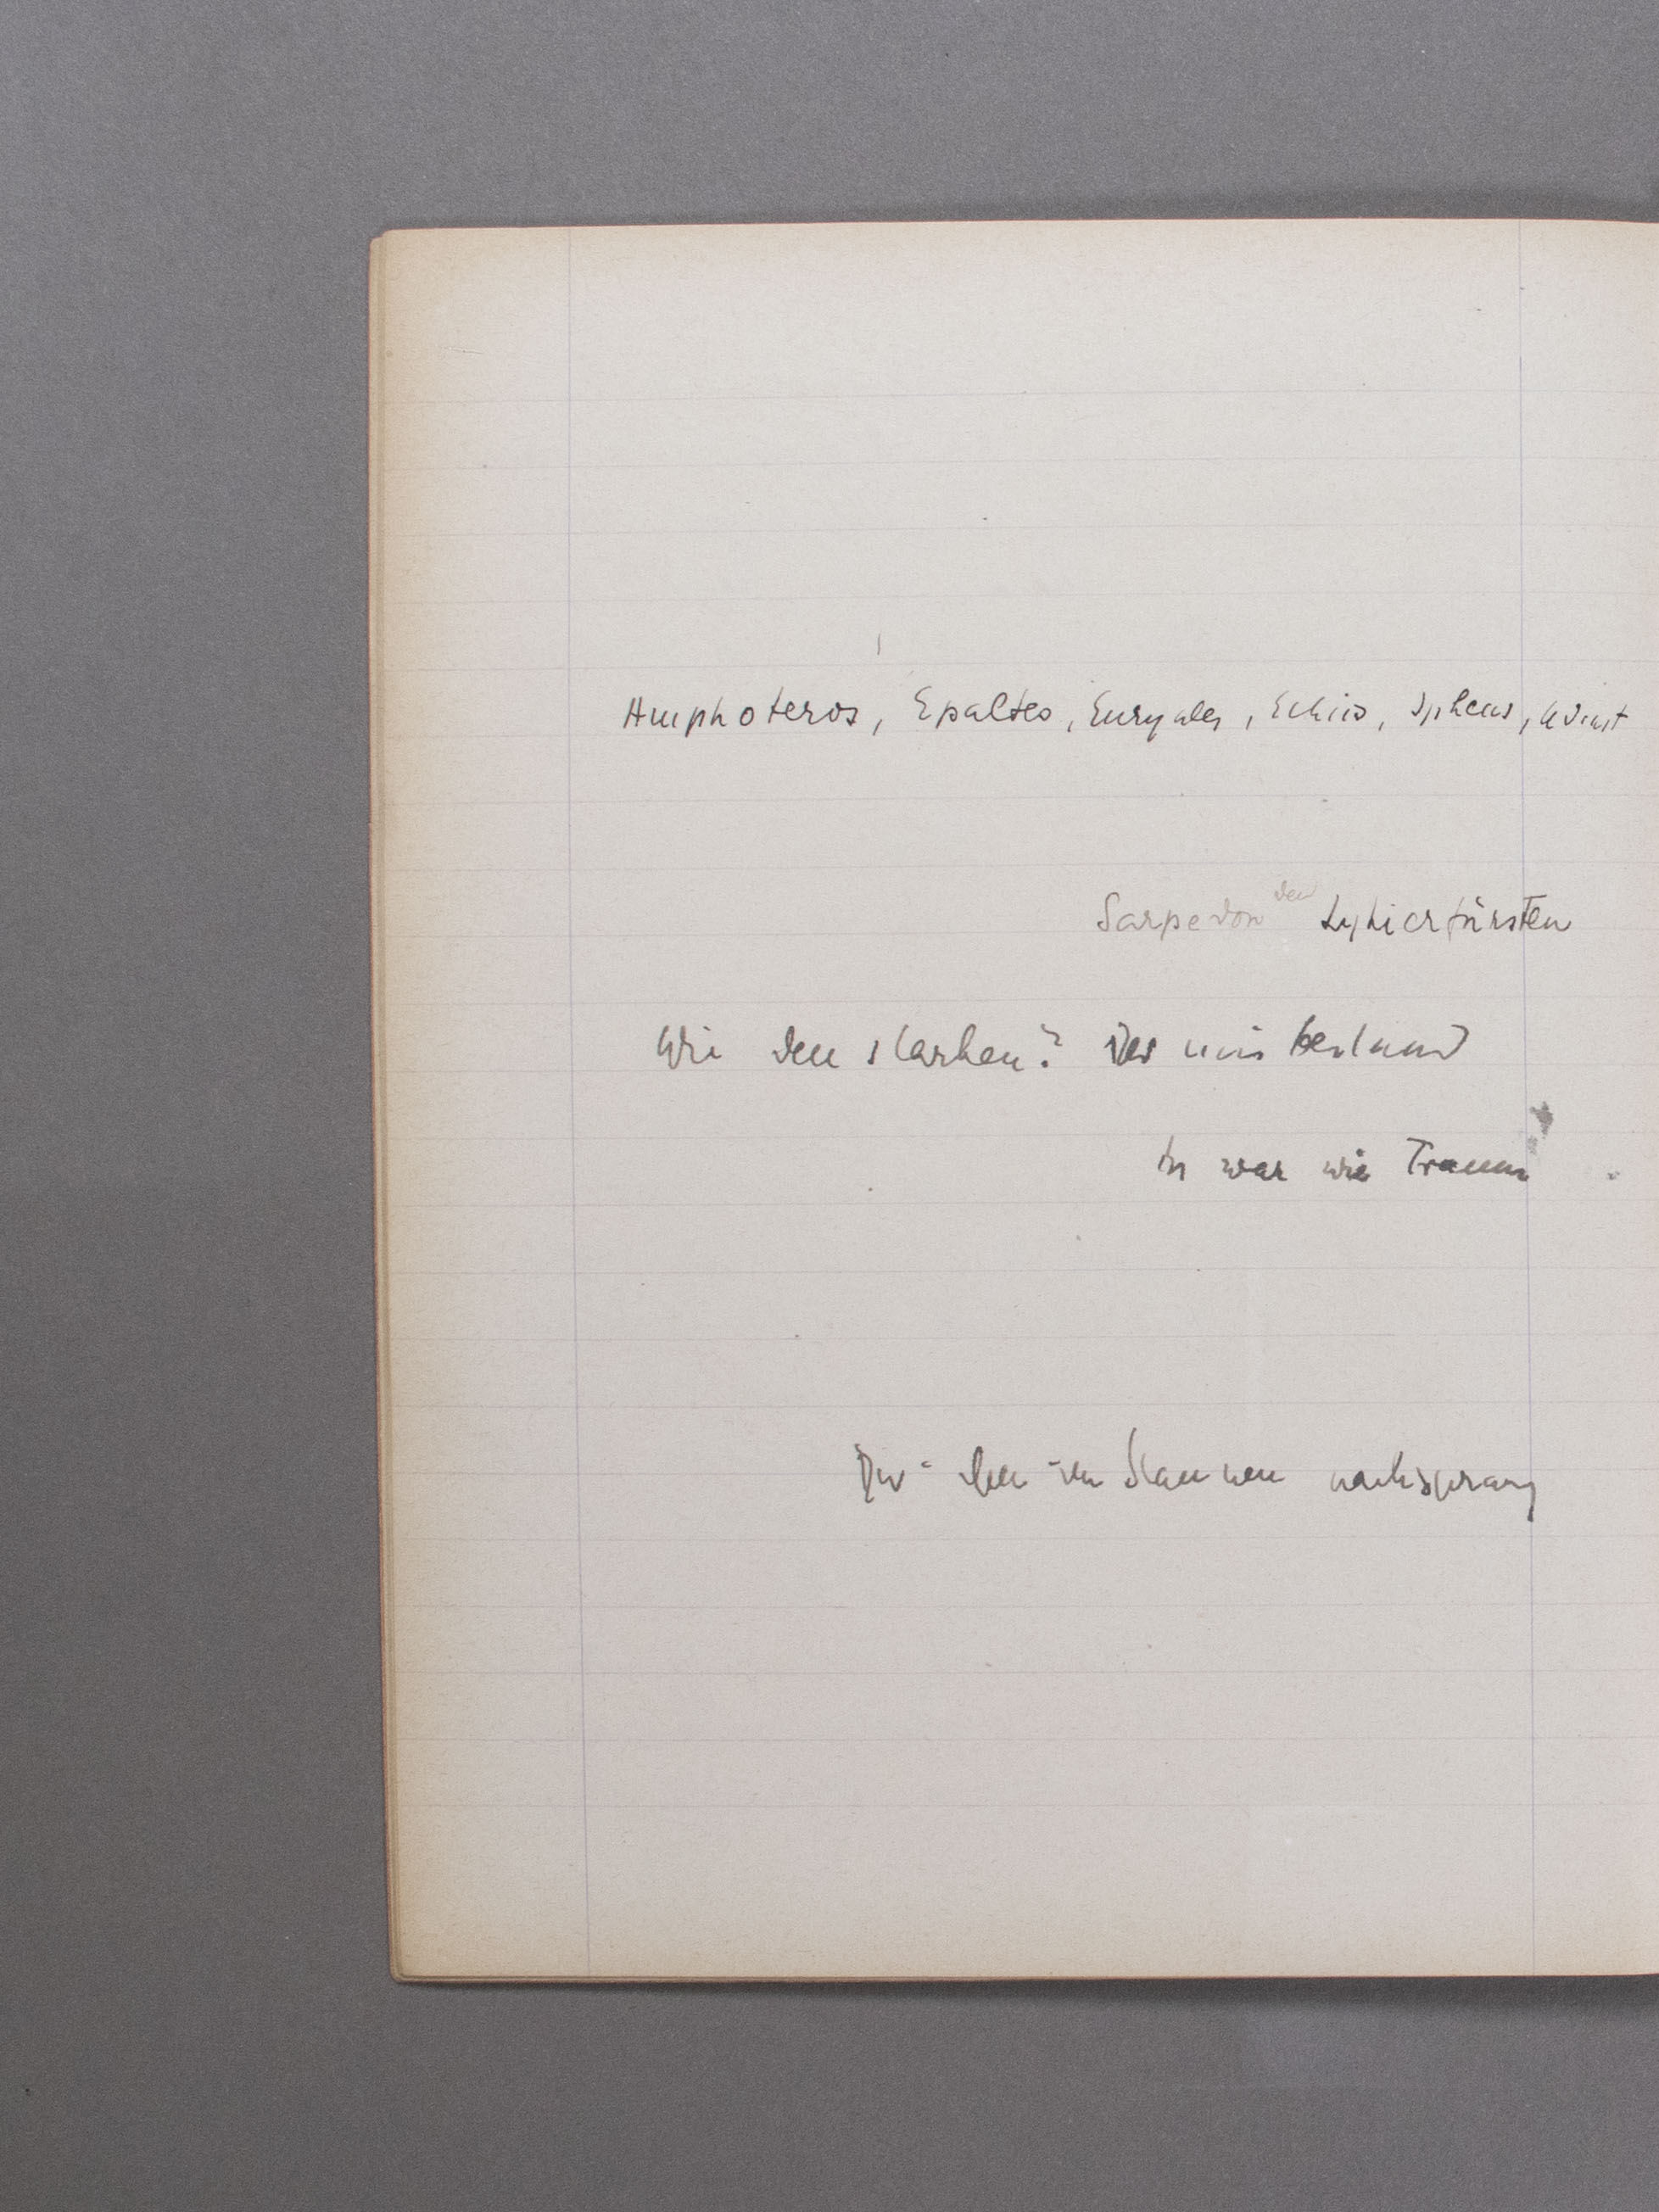 Amphoteros, Epaltes, Euryales, Echios, Ipheus,
Sarpedon den Lykierfürsten
Wie den starken? Der uns bestand
Er war wie Traum
den Staunen nachsprang